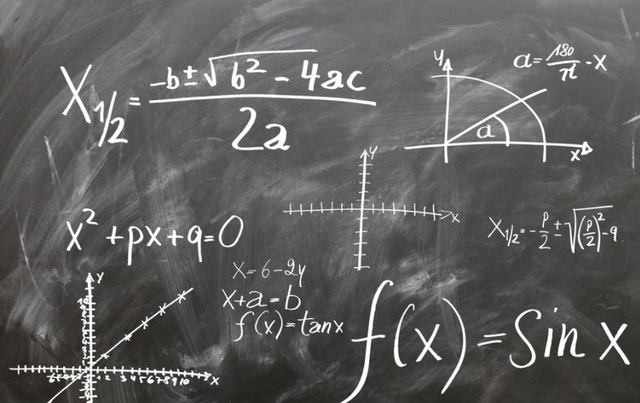 X1/2 = -b ± √b² - 4ac / 2a
y
a = 180/π · x
a
x
y
x
x² + px + q = 0
X1/2 = - p/2 ± √(p/2)² - q
x = 6 - 2y
x + a = b
f(x) = tan x
f(x) = Sin x
y
x